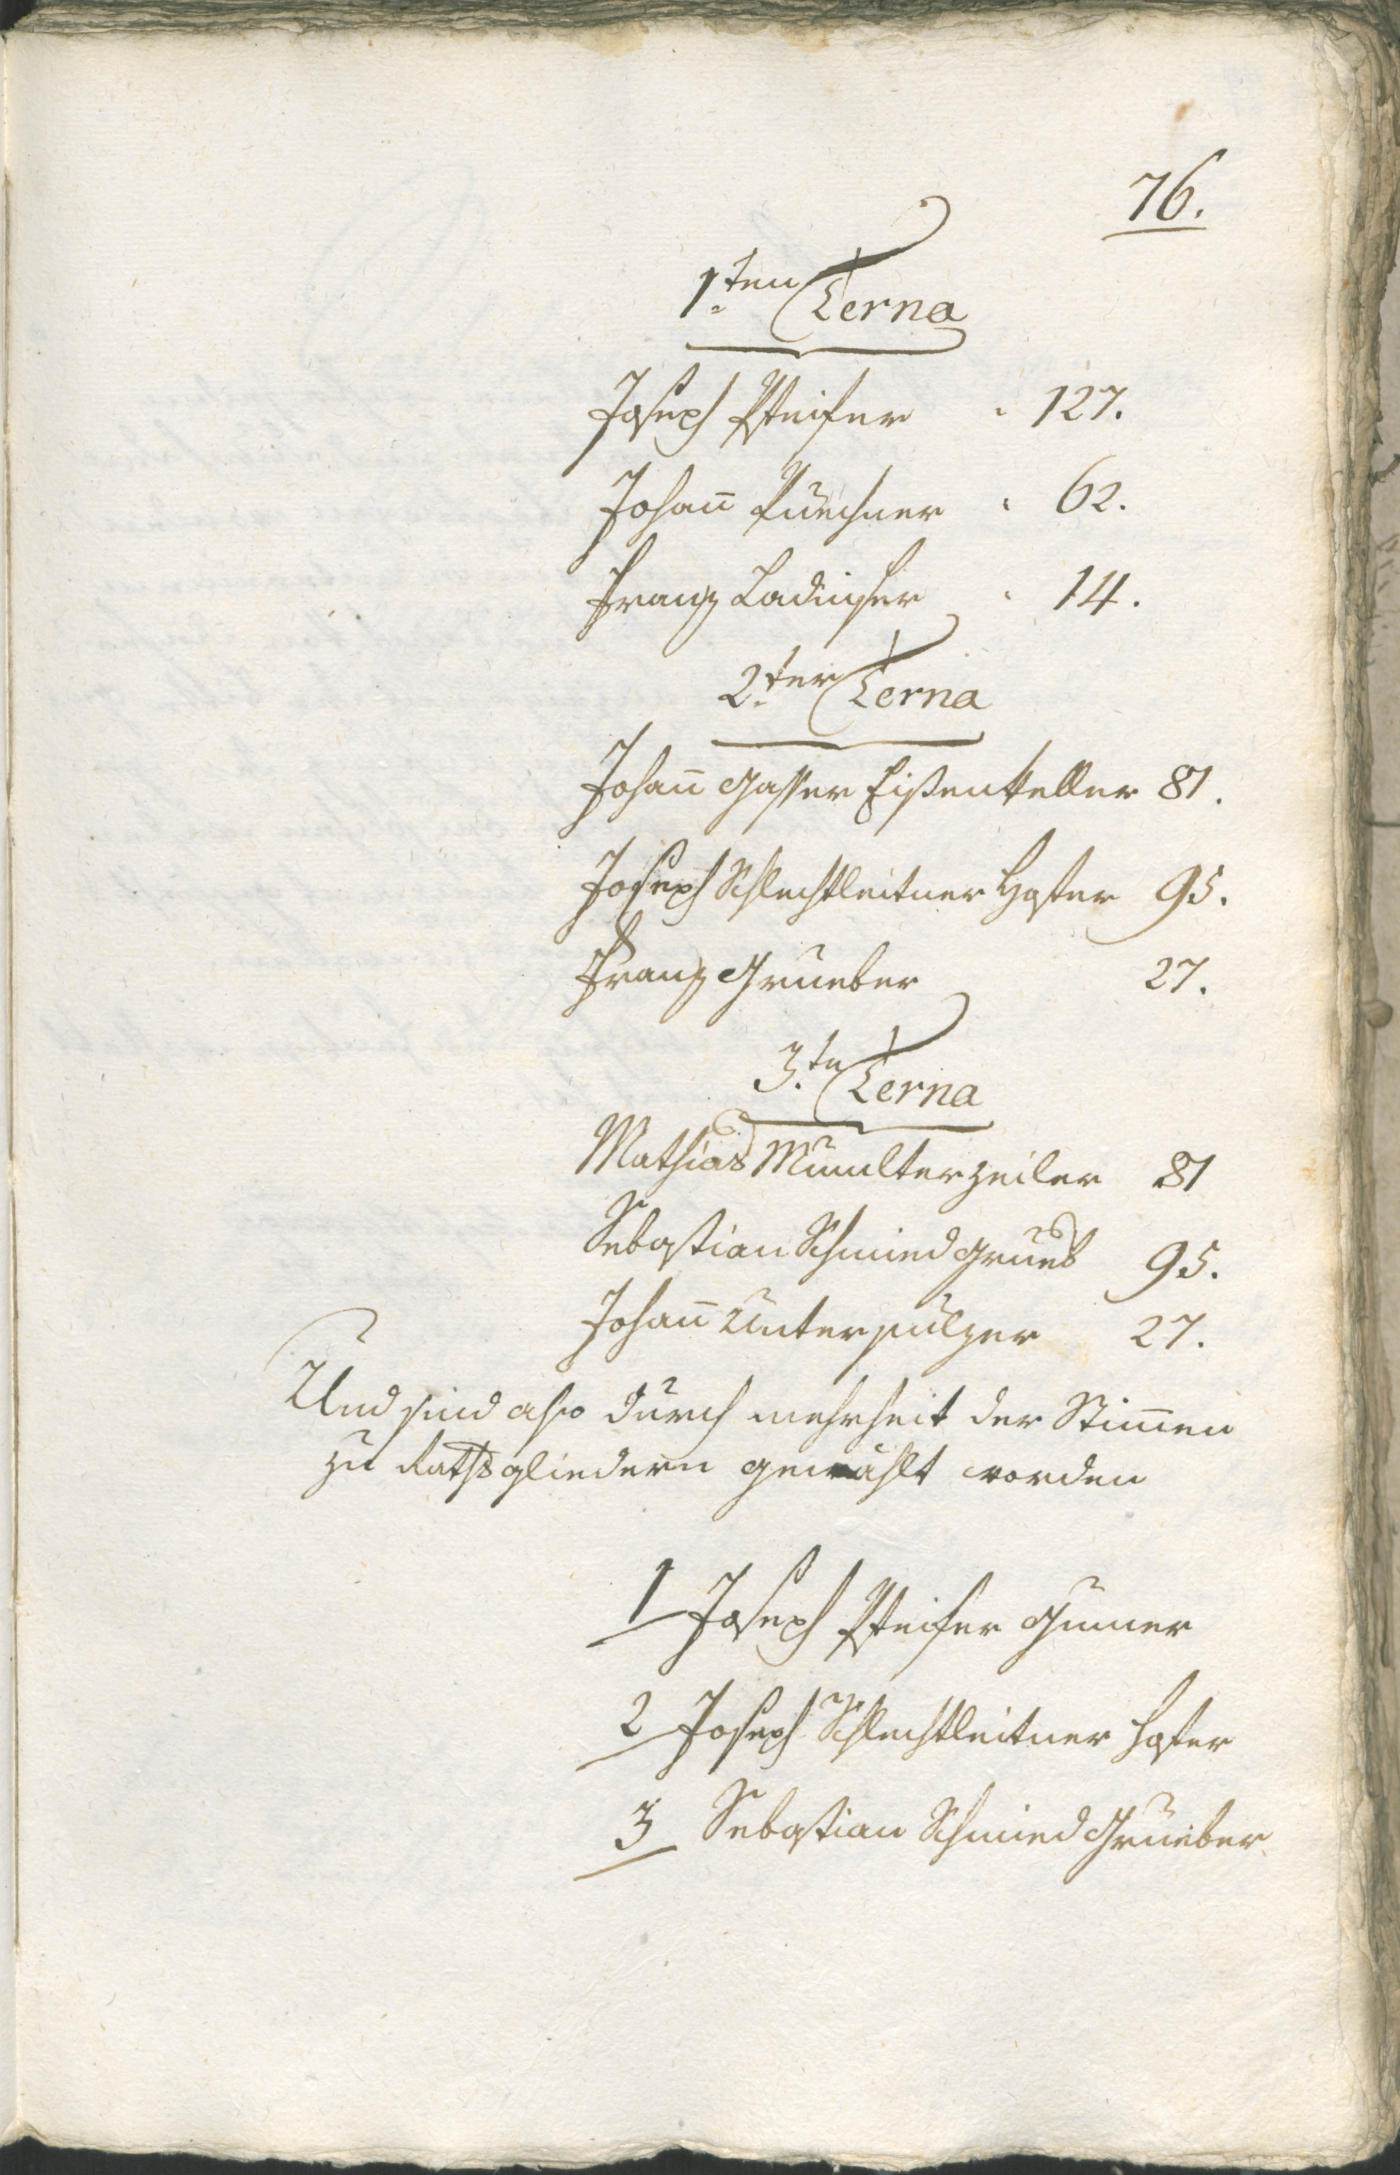 76.
1.ten Terna
Joseph Pfeifer 127.
Johann Puechner 62.
Franz Ladinser 14.
2.ter Terna
Johann Gasser Eißenkeller 81.
Joseph Schlechtleitner Hofer 95.
Franz Grueber 27.
3.te Terna
Mathias Mumelterzeiler 81
Sebastian Schmied Grueb 95.
Johann Unterpulzer 27.
Und sind also durch mehrheit der Stimen
zu Rathsgliedern gewählt worden
1 Joseph Pfeifer Gumer
2 Joseph Schlechtleitner Hofer
3 Sebastian Schmied Grueber